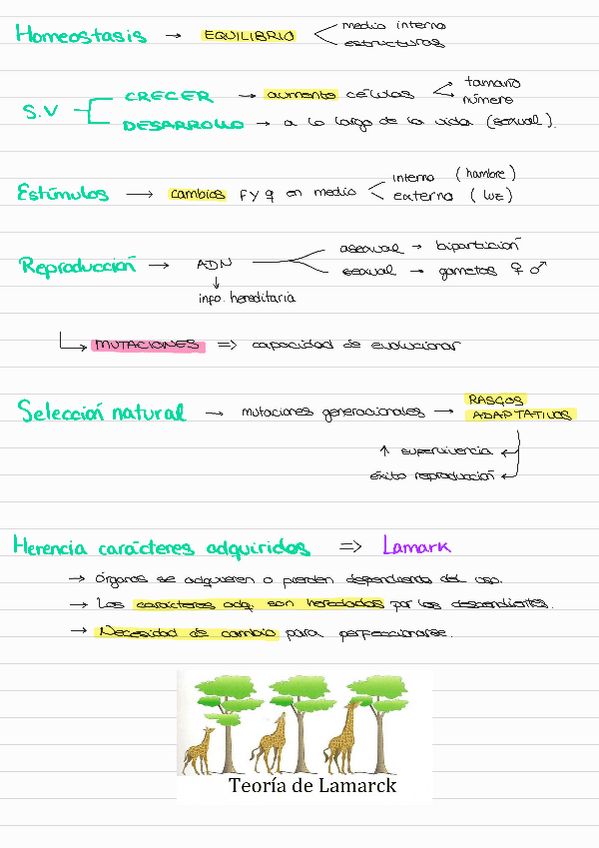 Homeostasis → EQUILIBRIO < medio interno
estructuras
S.V CRECER → aumento células < tamaño
número
DESARROLLO → a lo largo de la vida (sexual).
Estímulos → cambios F y q en medio < interno (hambre)
externo (luz)
Reproducción → ADN asexual → bipartición
sexual → gametos ♀ ♂
↓
info. hereditaria
MUTACIONES => capacidad de evolucionar
Selección natural → mutaciones generacionales → RASGOS
ADAPTATIVOS
↑ supervivencia
éxito reproducción
Herencia carácteres adquiridos => Lamark
→ órganos se adquieren o pierden dependiendo del uso.
→ Los carácteres adq. son heredados por los descendientes.
→ Necesidad de cambio para perfeccionarse.
Teoría de Lamarck